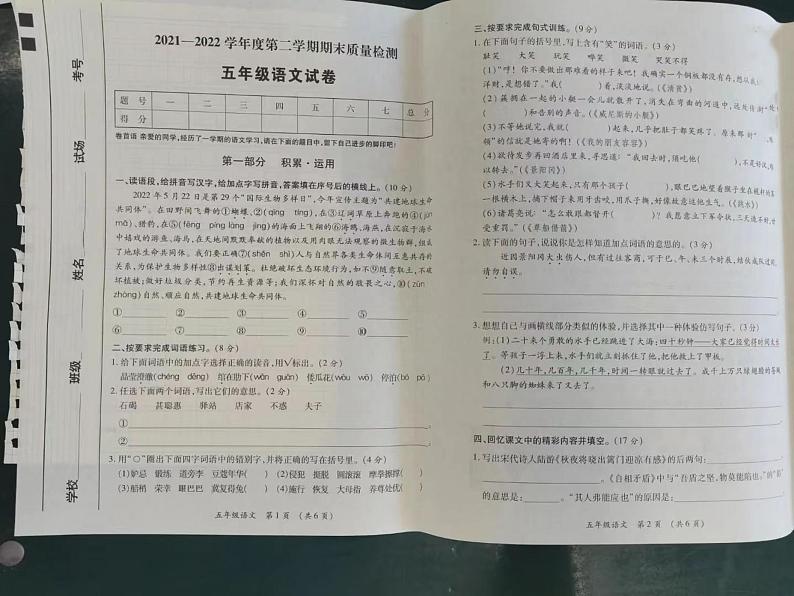 2021—2022学年度第二学期期末质量检测
五年级语文试卷
题号 一 二 三 四 五 六 七 总分
得分
卷首语 亲爱的同学,经历了一学期的语文学习,请在下面的题目中,留下自己进步的脚印吧!
第一部分 积累·运用
一、读语段,给拼音写汉字,给加点字写拼音,答案填在序号后的横线上。(10分)
2022年5月22日是第29个“国际生物多样日”,今年宣传主题为“共建地球生命
共同体”。在田野间飞舞的①蝴蝶、②(qīng tíng),在③辽河草原上奔跑的④
(luò tuo)、⑤(fēng píng làng jìng)的海面上飞翔的⑥海鸥、海燕,在沉寂于海水
中嬉戏的海鱼、海马,在天地间默默奉献的植物以及用肉眼无法观察的微生物,都组成
了地球生命共同体。我们要正确⑦(shěn shì)人与自然界各类生命体间互惠共存的
关系,为保护生物多样性⑧出谋划策。杜绝破坏生态环境行为,如不⑨随意践踏、
破坏植被;做好垃圾分类,节约再生资源等;我们深怀对自然的敬畏之心,⑩(zūn
zhòng)自然、顺应自然,共建地球生命共同体。
① ② ③ ④ ⑤
⑥ ⑦ ⑧ ⑨ ⑩
二、按要求完成词语练习。(8分)
1. 给下面词语中的加点字选择正确的读音,用√标出。(2分)
晶莹澄澈(chéng dèng) 绾在肋下(wǎn guǎn) 倭瓜花(wōu wō) 停泊(bó pō)
2. 任选下面两个词语,写出它们的意思。(2分)
石碣 甚聪惠 驿站 店家 不惑 夫子
①
②
3. 用“○”圈出下面四字词语中的错别字,并将正确的写在括号里。(4分)
(1)妒忌 锻练 道旁李 豆蔻年华( ) (2)侵犯 挑腿 圆滚滚 摩拳擦掌( )
(3)船稍 荣幸 眼巴巴 冀复得兔( ) (4)施行 恢复 大母指 养尊处优( )
五年级语文 第1页 (共6页)
学校
班级
姓名
试场
考号
三、按要求完成句式训练。(9分)
1. 在下面句子的括号里,写上含有“笑”的词语。(3分)
耻笑 大笑 玩笑 嘲笑 微笑 哭笑不得
(1)“哼!你不要做出那难看的样子来吧!我确实一个铜板都没有存,想从我
洋财,是想错了。”我( )着,淡淡地说。(《清贫》)
(2)簇拥在一起的小艇一会儿就散开了,消失在弯曲的河道中,远处传来
( )和告别的声音。(《威尼斯的小艇》)
(3)不等他说完,我就( )起来,几乎把肚子都笑疼了。
馈”的信就是她寄的啊!(《我的朋友容容》)
(4)欲待发步再回庙里来,又想道:“我回去时须吃他( ),不是好汉,难
以转去。”(《景阳冈》)
(5)水手们又大笑起来,只有孩子( ),他脱下上衣,爬上桅杆的第一
根横木上,摘下帽子来用牙齿咬,用爪子撕,好像故意逗他生气。
(6)诸葛亮说:“怎么敢跟都督开( )?我愿意立下军令状,三天造不好,甘
受重罚。”(《草船借箭》)
2. 读下面的句子,说说你是怎样知道加点词语的意思的。(3分)
近因景阳冈大虫伤人,但有过往客商可于巳、午、未三个时辰,结伙成队过冈,
请勿自误。
3. 想想自己与画横线部分类似的体验,并选择其中一种体验仿写句子。(3分)
例:(1)二十来个勇敢的水手已经跳进了大海:四十秒钟——大家已经觉得时间太长
了。等孩子一浮上来,水手们就立刻抓住了他,把他救上了甲板。
(2)几十年,几百年,几千年,时间一转眼就过去了。成千上万只绿翅膀的苍蝇
和八只脚的蜘蛛来了又去。
四、回忆课文中的精彩内容并填空。(17分)
1. 写出宋代诗人陆游《秋夜将晓出篱门迎凉有感》的后两句:
。《自相矛盾》中与“吾盾之坚,物莫能陷也。”的“陷”
的意思是: 。“其人弗能应也”的原因是:
五年级语文 第2页 (共6页)